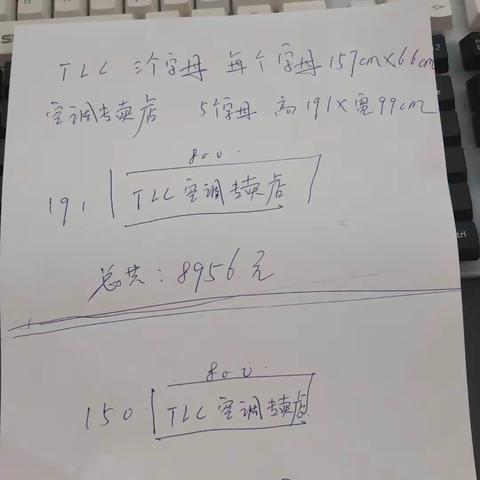 TLC 三个字母 每个字母157cm×66cm
空调专卖店 5个字母 高191×宽99cm
800.
191 TLC空调专卖店
总共：8956元
800.
150 TLC空调专卖店